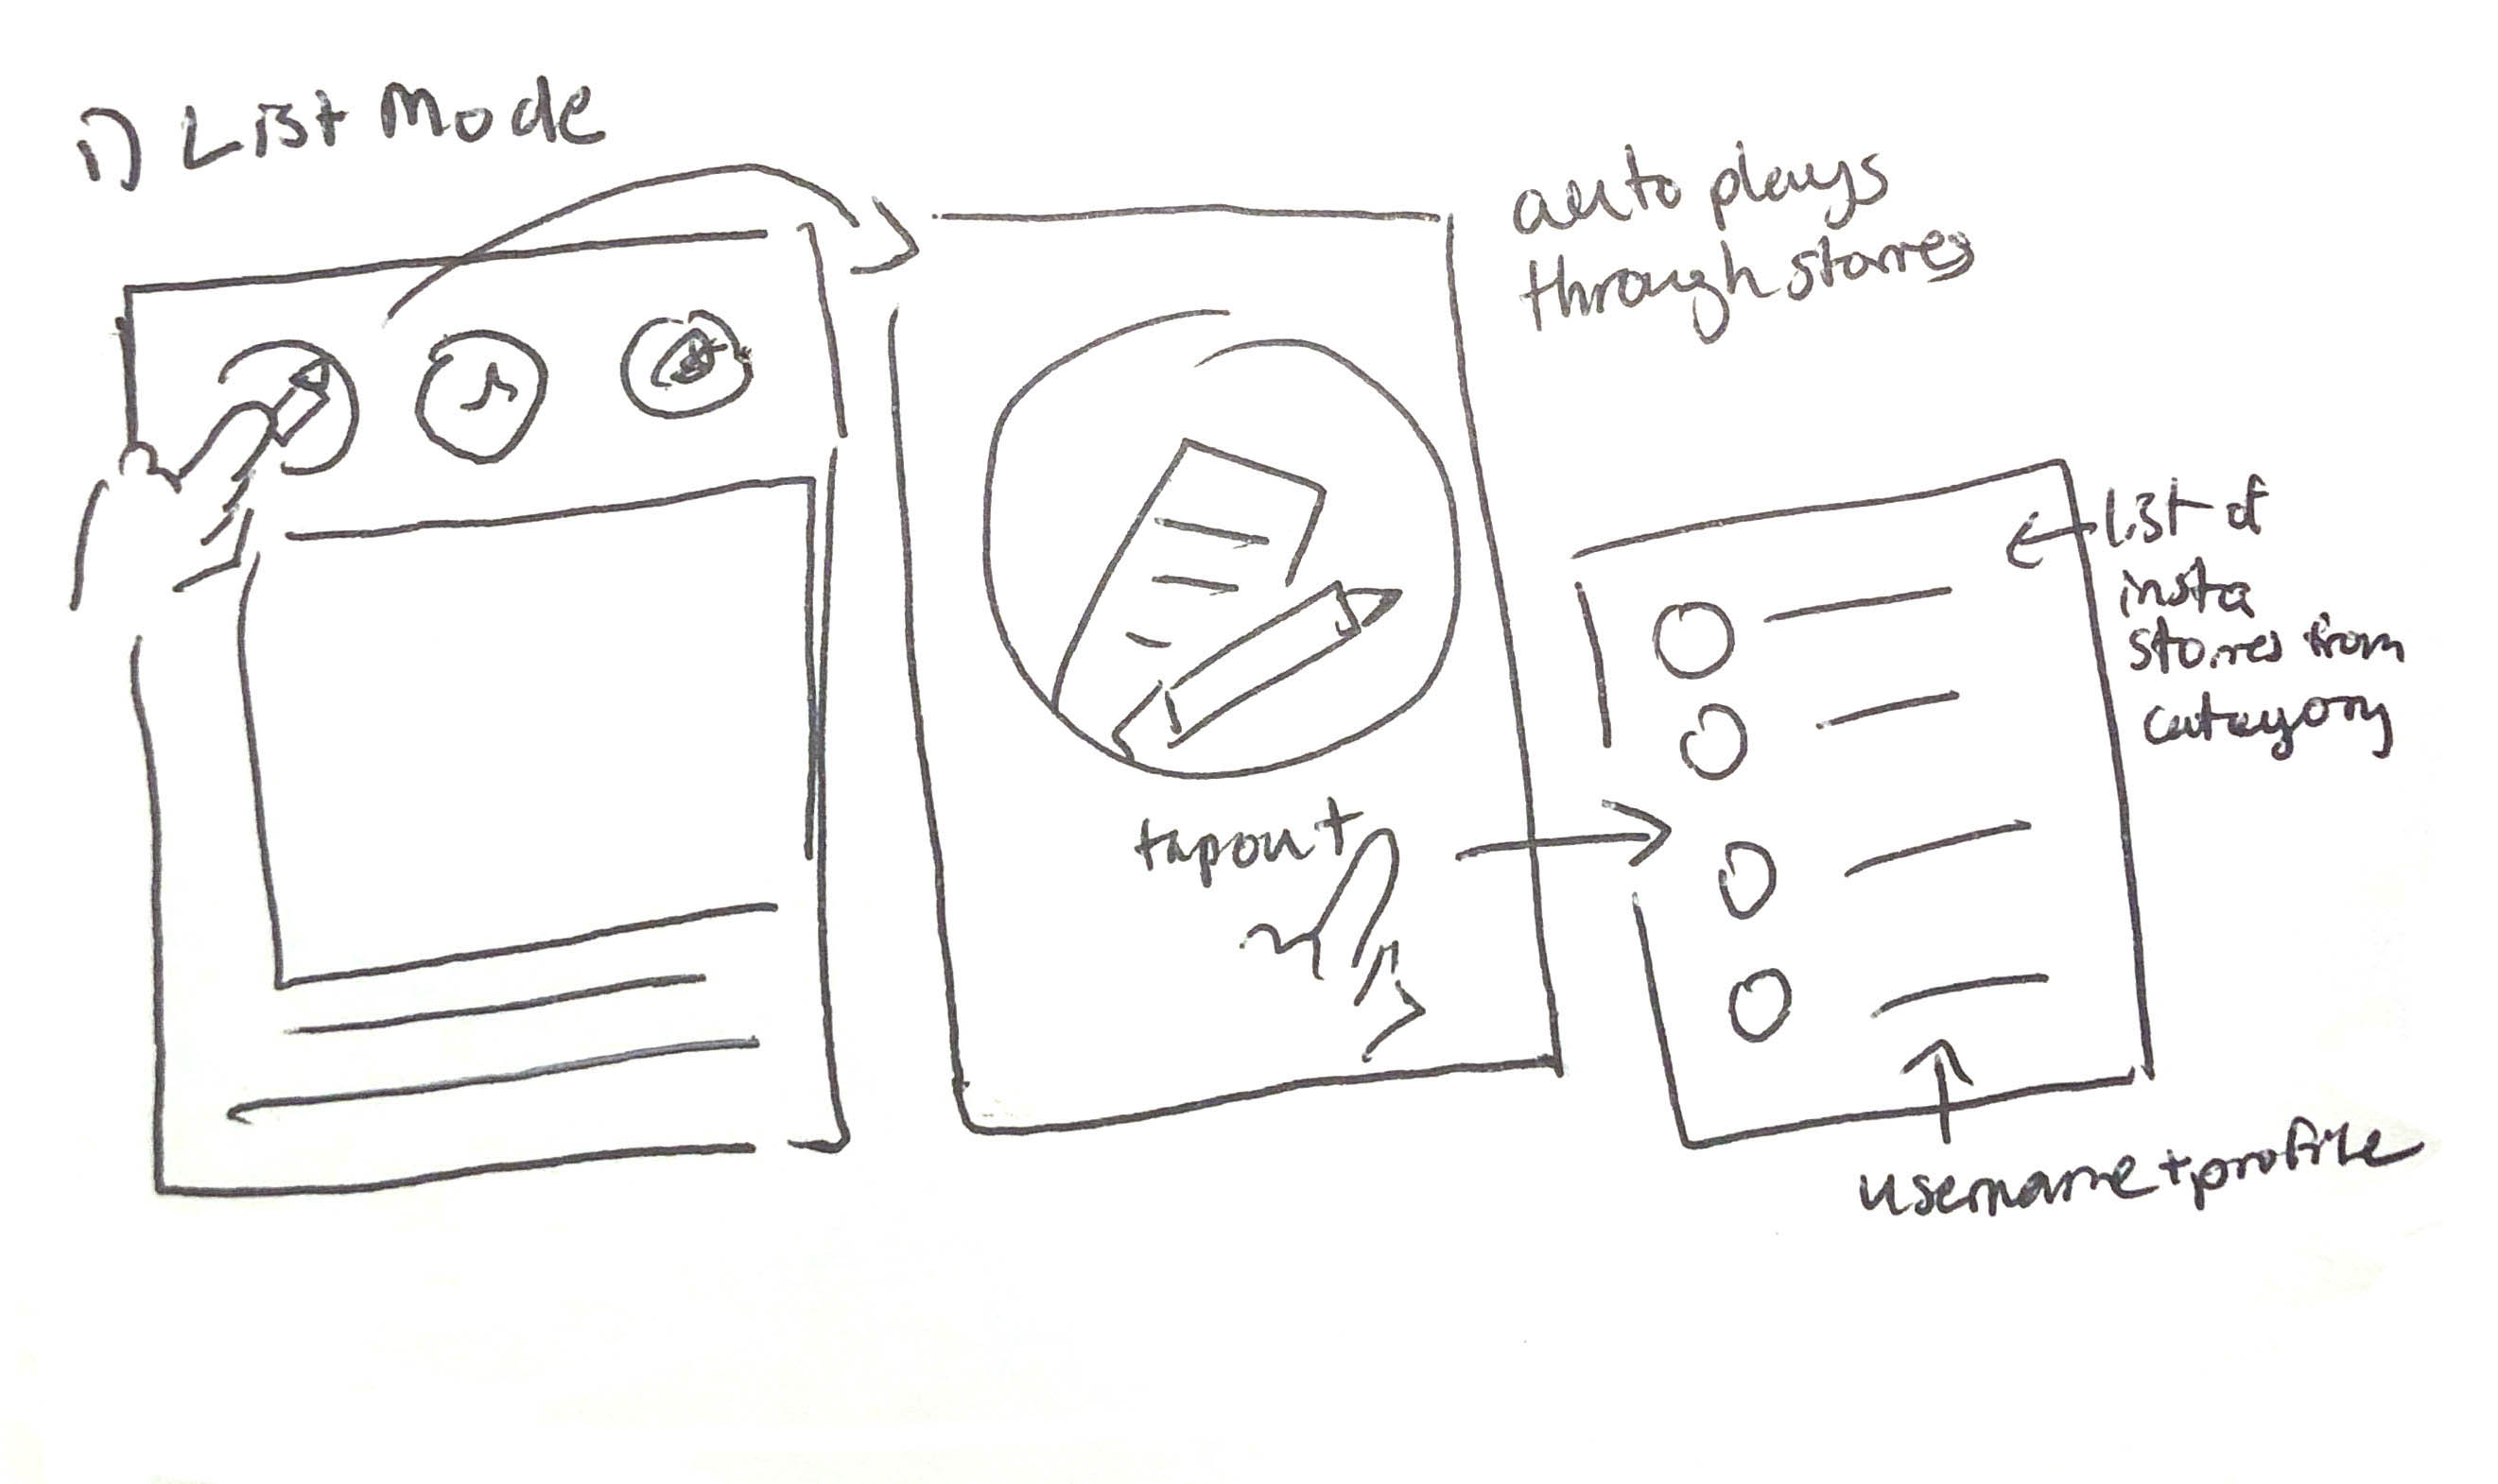 1) List Mode
auto plays
through stories
tap out
list of
insta
stories from
category
username + profile